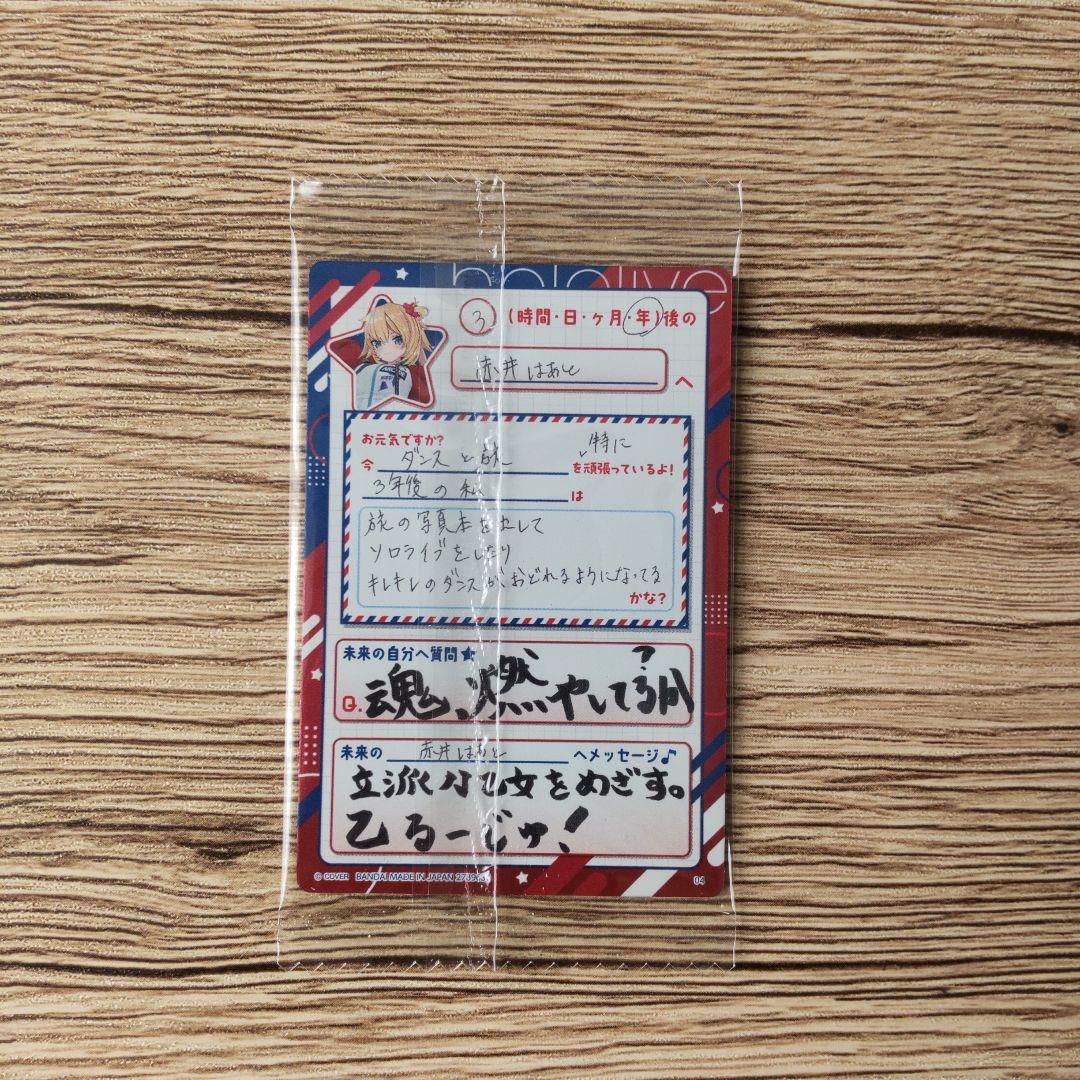 hololive
3 (時間・日・ヶ月・年)後の
赤井はあと へ
お元気ですか?
今 ダンスと旅 特に を頑張っているよ!
3年後の私 は
旅の写真本を出して
ソロライブをしたり
キレキレのダンスが、おどれるようになってる
かな?
未来の自分へ質問★
Q.魂、燃やしてるか?
未来の 赤井はあと へメッセージ♪
立派な乙女をめざす。
乙るーじゅ!
© COVER BANDAI MADE IN JAPAN 04